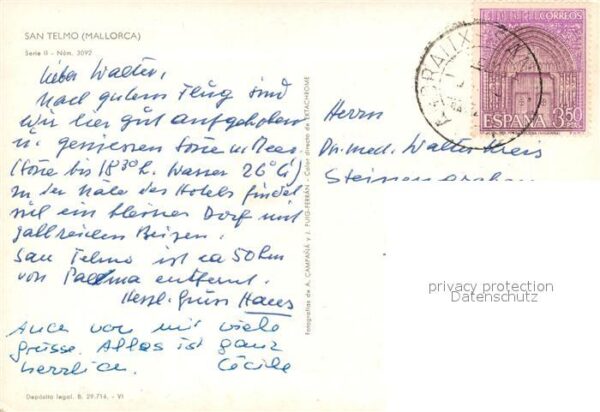 SAN TELMO (MALLORCA)
Serie II - Núm. 3092
Lieber Walter,
Nach gutem Flug sind
wir hier gut aufgehoben
u. geniessen Sonne u. Meer
(Sonne bis 18³⁰ h. Wasser 26° C)
In der Nähe des Hotels findet
sich ein kleines Dorf mit
zahlreichen Beizen.
San Telmo ist ca 50 km
von Palma entfernt.
Herzl. Gruss Hans
Auch von mir viele
Grüsse. Alles ist ganz
herrlich. Cécile
Depósito legal. B. 29.714. - VI
Fotografías de A. CAMPAÑÁ y J. PUIG-FERRÁN - Color directo de EKTACHROME
CORREOS
ESPAÑA 3,50
Herrn
Dr. med. Walter
privacy protection
Datenschutz